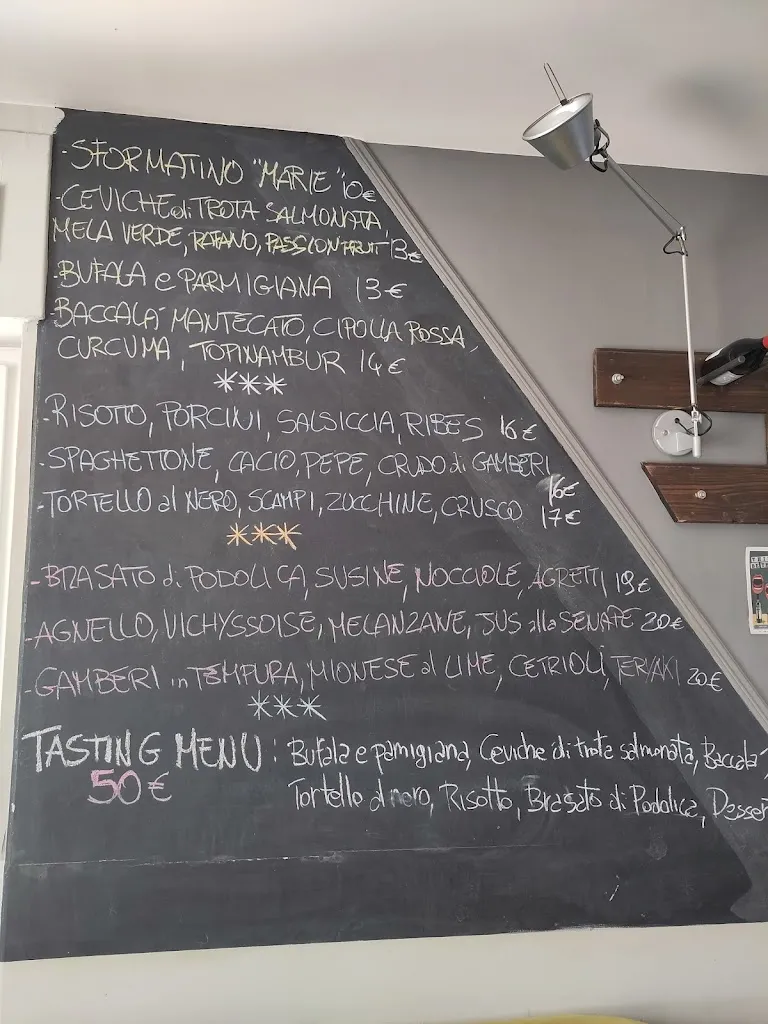 -SFORMATINO "MARIE" 10€
-CEVICHE di TROTA SALMONATA,
MELA VERDE, RAFANO, PASSION FRUIT 13€
-BUFALA e PARMIGIANA 13€
BACCALA' MANTECATO, CIPOLLA ROSSA,
CURCUMA, TOPINAMBUR 14€
***
-RISOTTO, PORCINI, SALSICCIA, RIBES 16€
-SPAGHETTONE, CACIO, PEPE, CRUDO di GAMBERI
16€
-TORTELLO al NERO, SCAMPI, ZUCCHINE, CRUSCO 17€
***
-BRASATO di PODOLICA, SUSINE, NOCCIOLE, AGRETTI 19€
-AGNELLO, VICHYSSOISE, MELANZANE, JUS alla SENAPE 20€
-GAMBERI in TEMPURA, MIONESE al LIME, CETRIOLI, TERIAKI 20€
***
TASTING MENU: Bufala e parmigiana, Ceviche di trota salmonata, Baccala',
50€ Tortello al nero, Risotto, Brasato di Podolica, Desser